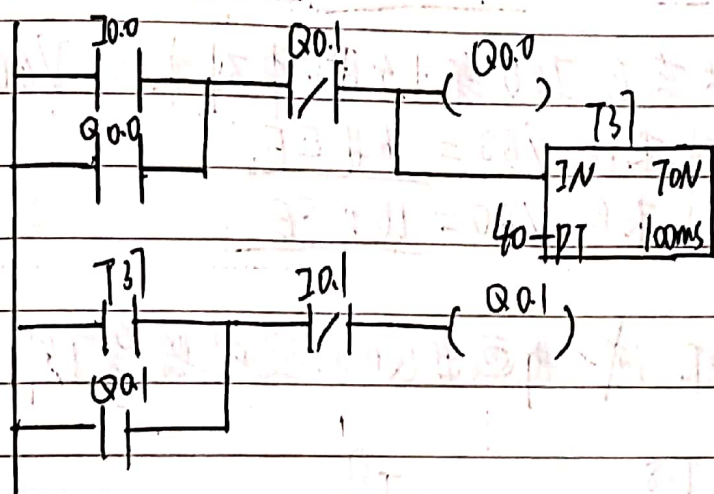 I0.0
Q0.1
Q0.0
Q0.0
T37
IN TON
40 PT 100ms
T37
I0.1
Q0.1
Q0.1